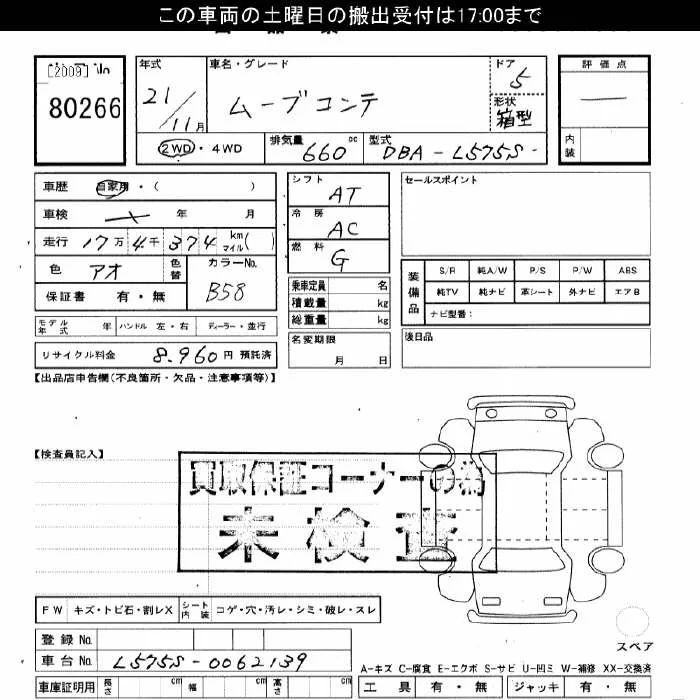 この車両の土曜日の搬出受付は17:00まで
[2009]
80266
年式
21/11月
車名・グレード
ムーブコンテ
ドア
5
形状
箱型
評価点
内装
2WD・4WD
排気量
660 cc
型式
DBA-L575S-
車歴 自家用・( )
車検 年 月
走行 17万 4千 374 km マイル( )
色 アオ
色替
カラーNo.
B58
保証書 有・無
シフト
AT
冷房
AC
燃料
G
乗車定員 名
積載量 kg
総重量 kg
名変期限
月 日
セールスポイント
装備品
S/R 純A/W P/S P/W ABS
純TV 純ナビ 革シート 外ナビ エアB
ナビ型番:
後日品
モデル年式 年 ハンドル 左・右 ディーラー・並行
リサイクル料金 8,960 円 預託済
【出品店申告欄(不良箇所・欠品・注意事項等)】
【検査員記入】
買取保証コーナーの為
未検査
FW キズ・トビ石・割レX シート内装 コゲ・穴・汚レ・シミ・破レ・スレ
登録No.
車台No. L575S-0062139
スペア
A-キズ C-腐食 E-エクボ S-サビ U-凹ミ W-補修 XX-交換済
車庫証明用 長さ cm 幅 cm 高さ cm 工具 有・無 ジャッキ 有・無